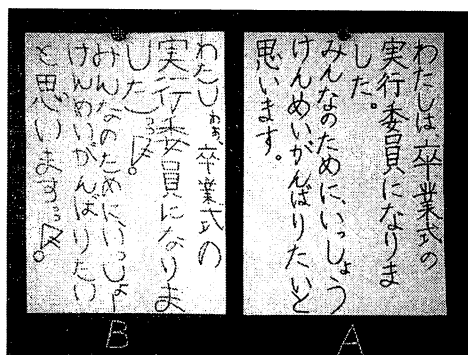 わたしは、卒業式の
実行委員になりま
した。
みんなのためにいっしょう
けんめいがんばりたいと
思います。
A
わたしゎぁ、卒業式の
実行委員になりま
した
みんなのためにいっしょー
けんめいがんばりたい
と思います
B